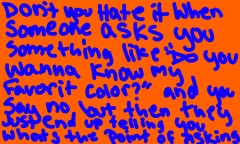 Don't you Hate it When
Someone asks you
Something like "Do you
Wanna know my
Favorit color?" and you
Say no but then they
Just end up telling you
what's the Point of Asking